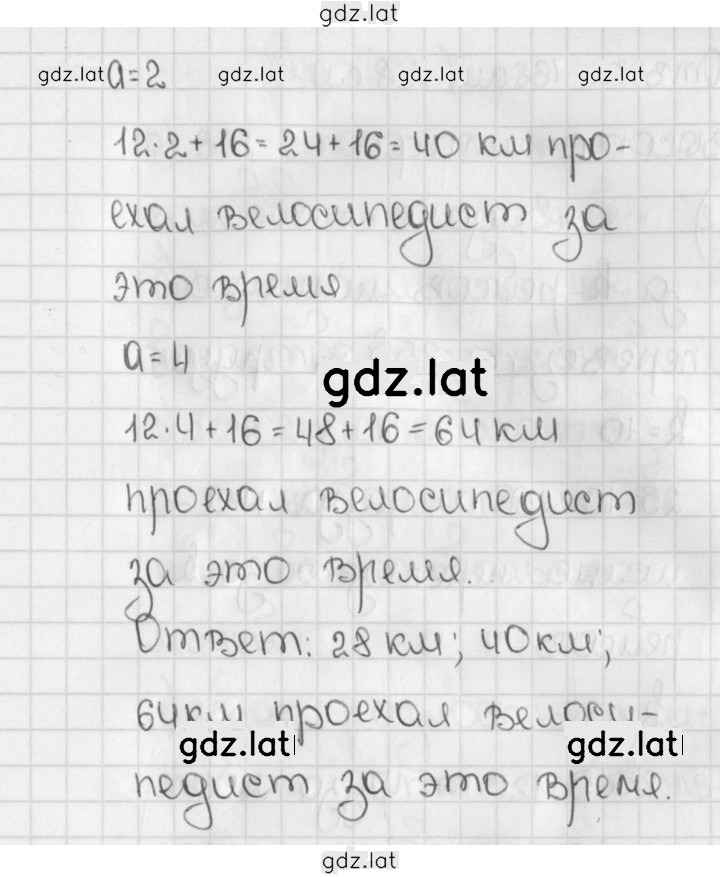 gdz.lat
gdz.lat a=2 gdz.lat gdz.lat gdz.lat
12·2+16=24+16=40 км про-
ехал велосипедист за
это время
a=4
gdz.lat
12·4+16=48+16=64 км
проехал велосипедист
за это время.
Ответ: 28 км; 40 км;
64 км проехал велоси-
gdz.lat gdz.lat
педист за это время.
gdz.lat